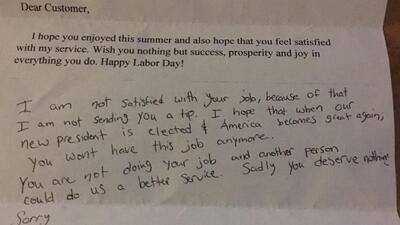 Dear Customer,
I hope you enjoyed this summer and also hope that you feel satisfied
with my service. Wish you nothing but success, prosperity and joy in
everything you do. Happy Labor Day!
I am not satisfied with your job, because of that
I am not sending you a tip. I hope that when our
new president is elected & America becomes great again,
you wont have this job anymore.
You are not doing your job and another person
could do us a better service. Sadly you deserve nothing
Sorry